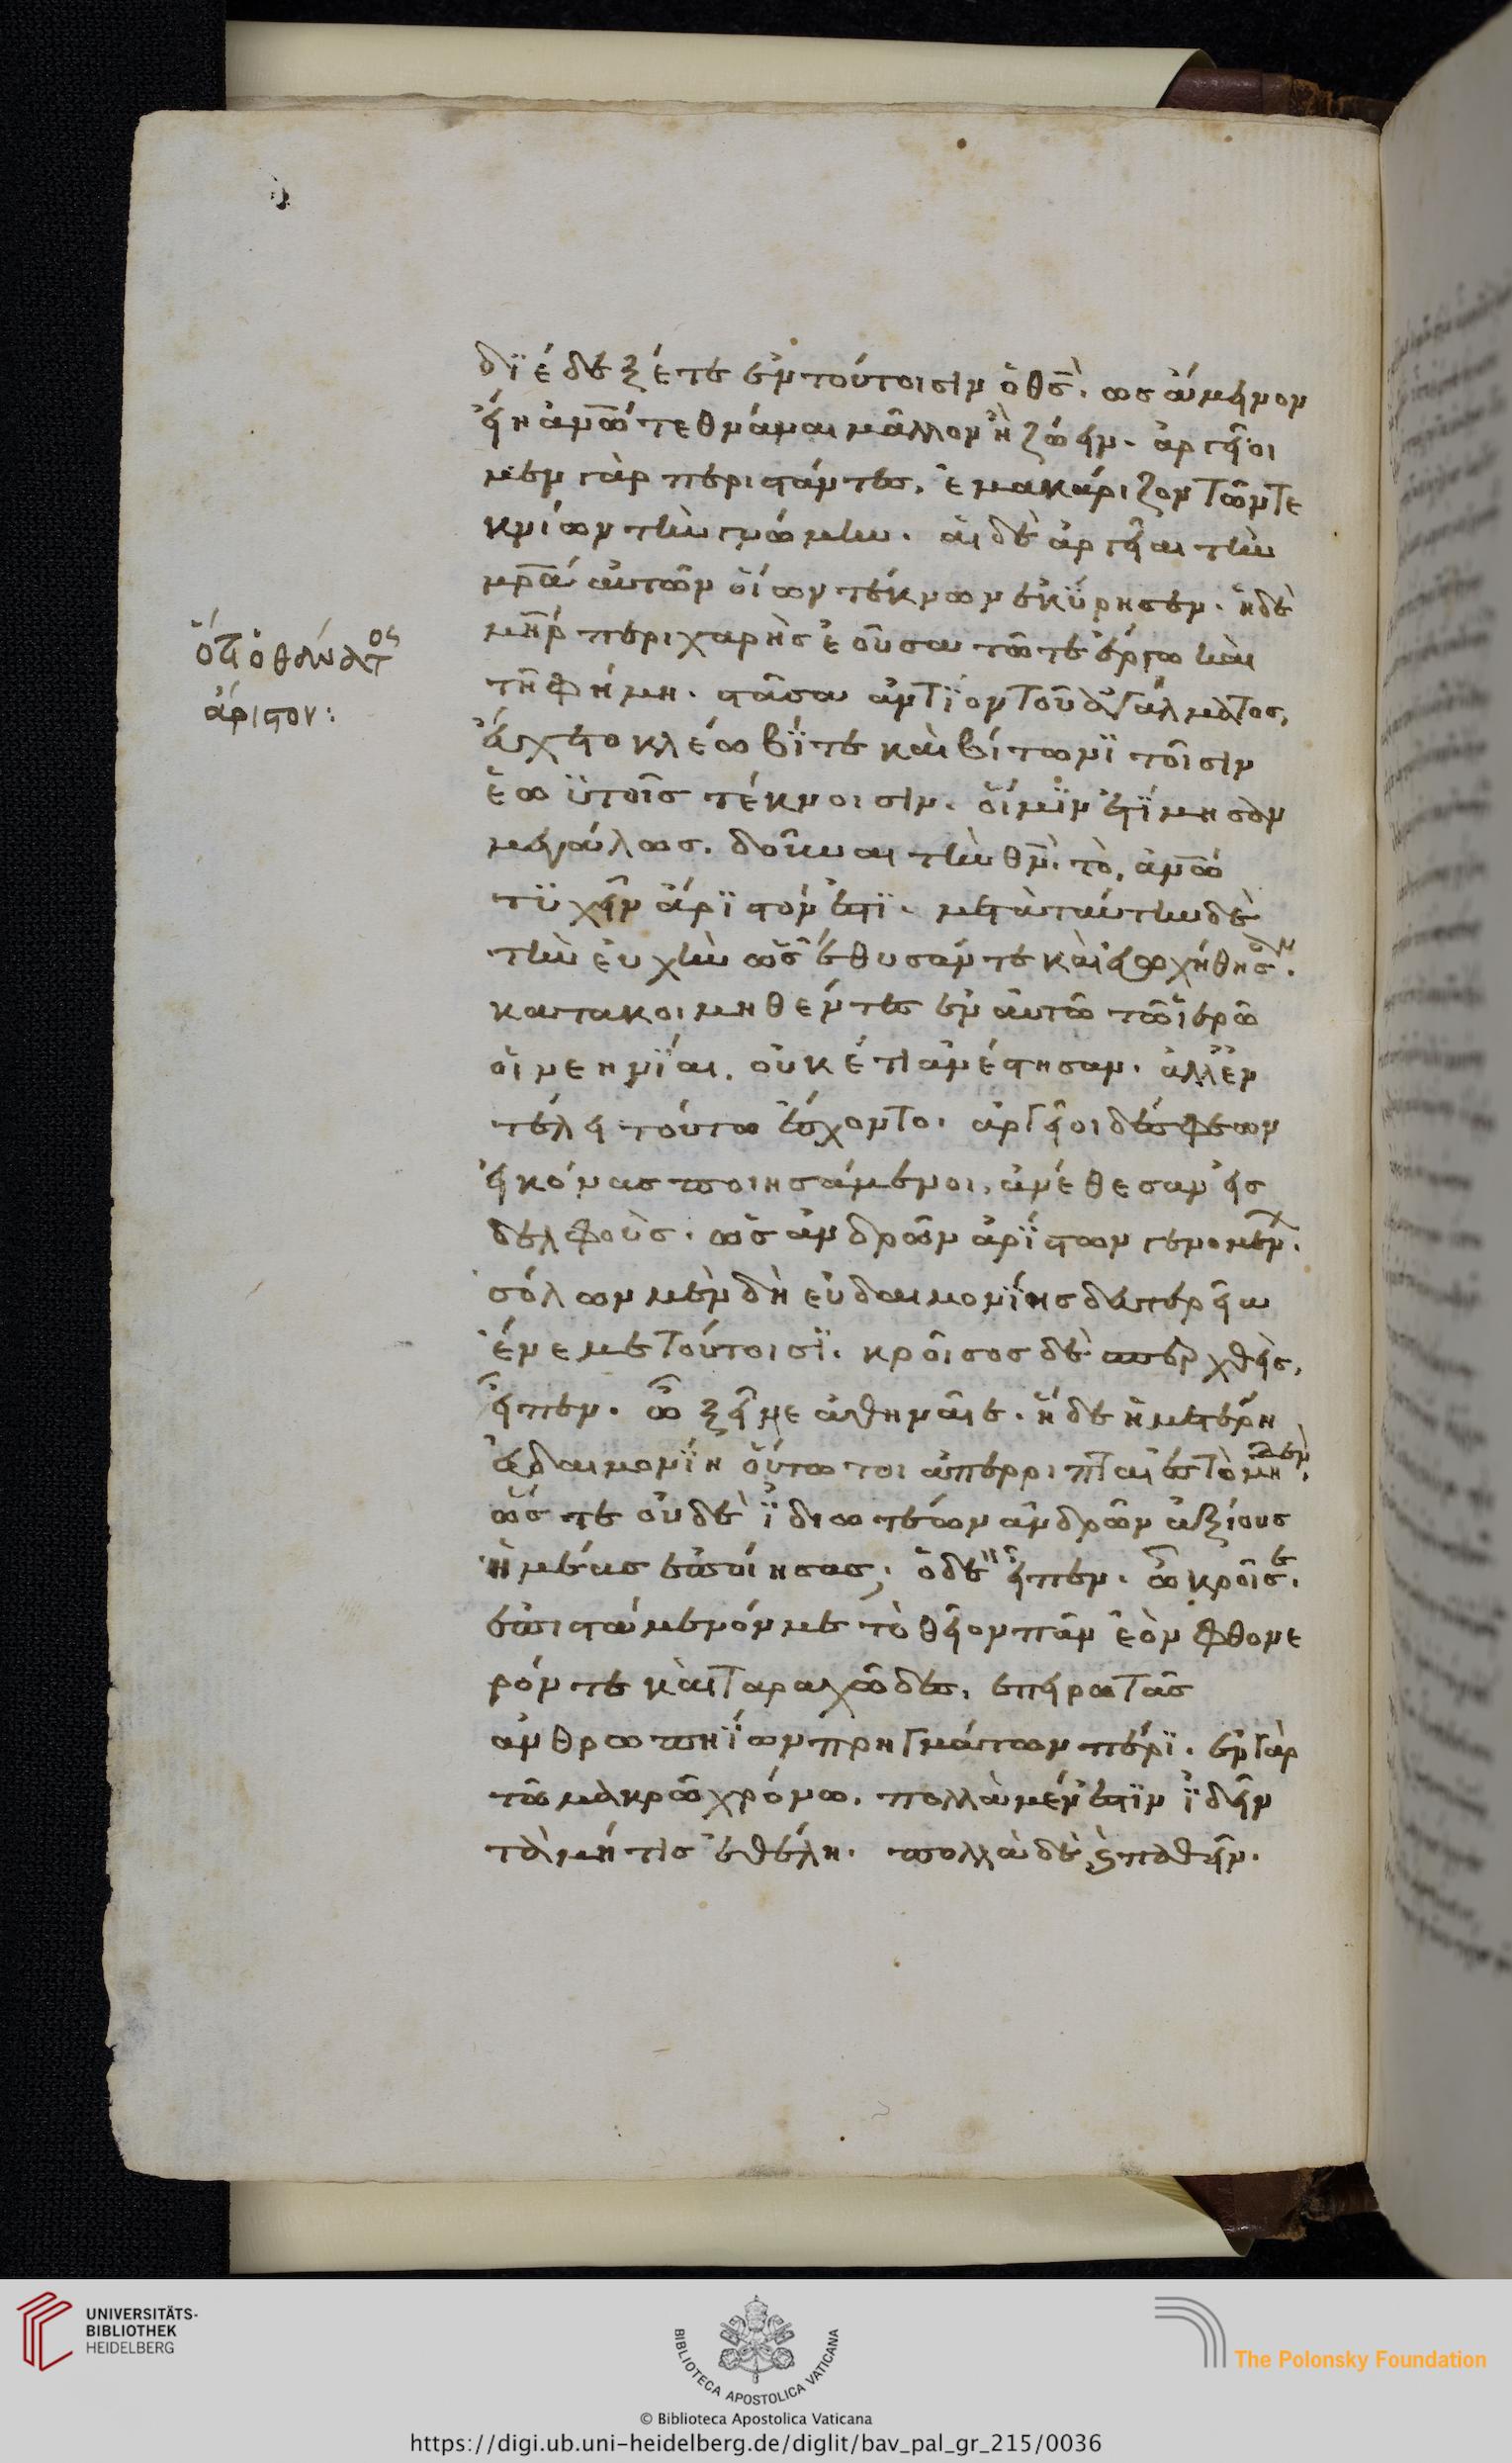 διέδεξέ τε ἐν τούτοισιν ὁ θς̅. ὡς ἄμεινον
εἴη ἀνω̅ τεθνάναι μᾶλλον ἢ ζώειν. ἀργεῖοι
μὲν γὰρ περιστάντες, ἐμακάριζον τῶν τε
κνίων τὴν γνώμην. αἱ δὲ ἀργεῖαι τὴν
μρ̅α αὐτῶν οἵων τέκνων ἐκύρησεν. ἡ δὲ
μη̅ρ περιχαρὴς ἐοῦσα τῶ τε ἔργω καὶ
τῆ φήμη. στᾶσα ἀντίον τοῦ ἀγάλματος,
εὔχετο κλεώβϊ τε καὶ βίτωνϊ τοῖσιν
ἑωϋτοῖς τέκνοισιν. οἵ μϊν ἐτίμησαν
μεγάλως. δοῦναι τὴν θν̅. τὸ, ἀνω̅
τϋχεῖν ἄρϊστόν ἐστϊ. μετὰ ταύτην δὲ
τὴν εὐχὴν ὡς ἔθυσάν τε καὶ εὐωχήθησαν.
κατακοιμηθέντες ἐν αὐτῶ τῶ ἱερῶ
οἱ νεηνίαι. οὐκέτι ἀνέστησαν. ἀλλ' ἐν
τέλει τούτω ἔσχοντο. ἀργεῖοι δέ σφεων
εἰκόνας ποιησάμενοι, ἀνέθεσαν ἐς
δελφοὺς. ὡς ἀνδρῶν ἀρίστων γενομέν.
σόλων μὲν δὴ εὐδαιμονίης δευτερεῖα
ἔνεμε τούτοισϊ. κροῖσος δὲ σπερχθεὶς,
εἶπεν. ὦ ξεῖνε ἀθηναῖε. ἡ δὲ ἡμετέρη
εὐδαιμονίη οὕτω τοι ἀπέρριπται ἐς τὸ μηδέν.
ὥς τε οὐδὲ ἰδιωτέων ἀνδρῶν ἀξίους
ἡμέας ἐποίησας; ὁ δὲ εἶπεν. ὦ κροῖσε.
ἐπιστάμενόν με τὸ θεῖον πᾶν ἐὸν φθονε
ρόν τε καὶ ταραχῶδες, ἐπειρωτᾶς
ἀνθρωπηΐων πρηγμάτων πέρϊ. ἐν γὰρ
τῶ μακρῶ χρόνω. πολλὰ μέν ἐστϊν ἰδεῖν
τὰ μή τις ἐθέλη. πολλὰ δὲ καὶ παθεῖν.
ὅτι ὁ θάνατος
ἄριστον:
UNIVERSITÄTS-
BIBLIOTHEK
HEIDELBERG
BIBLIOTECA APOSTOLICA VATICANA
The Polonsky Foundation
© Biblioteca Apostolica Vaticana
https://digi.ub.uni-heidelberg.de/diglit/bav_pal_gr_215/0036